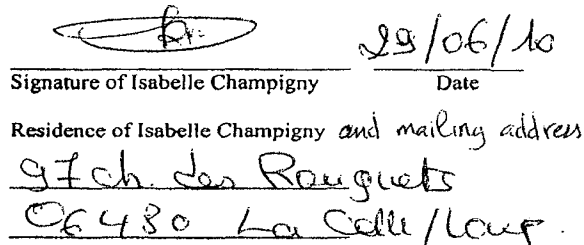 29/06/10
Signature of Isabelle Champigny Date
Residence of Isabelle Champigny and mailing address
97 ch. des Rouguets
06480 La Colle/Loup.